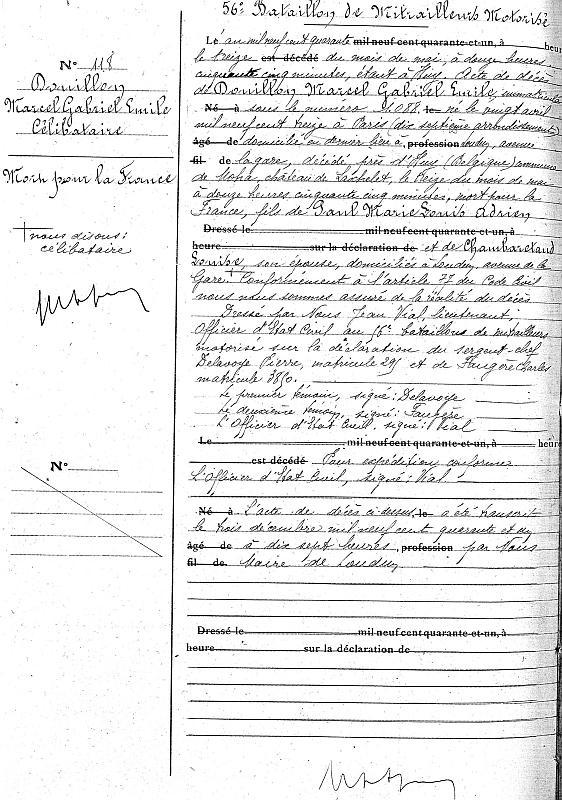 56e Bataillon de Mitrailleurs Motorisé
N° 118
Douillon
Marcel Gabriel Emile
Célibataire
Mort pour la France
+ nous disons:
célibataire
Le an mil neuf cent quarante mil neuf cent quarante-et-un, à heur
le treize est décédé du mois de mai, à douze heures
cinquante cinq minutes, étant à Huy. Acte de décès
de Douillon Marcel Gabriel Emile, immatriculé
Né à sous le numéro 2088, le né le vingt avril
mil neuf cent treize à Paris (dix septième arrondissement)
âgé de domicilié en dernier lieu à profession Loudun, avenue
fil de de la gare, décédé près d'Huy (Belgique) commune
de Moha, château de le treize du mois de mai
à douze heures cinquante cinq minutes, mort pour la
France, fils de Paul Marie Louis Adrien
Dressé le mil neuf cent quarante-et-un, à
heure sur la déclaration de et de Chambaretaud
Louise, son épouse, domiciliés à Loudun, avenue de la
Gare. + Conformément à l'article 77 du Code Civil
nous nous sommes assuré de la réalité du décès
Dressé par Nous Jean Vial, lieutenant,
Officier d'Etat Civil au bataillons de mitrailleurs
motorisé sur la déclaration du sergent-chef
Delavoye Pierre, matricule 295 et de Faugère Charles
matricule 3850.
Le premier témoin, signé: Delavoye
Le deuxième témoin, signé: Faugère
L'Officier d'Etat Civil, signé: Vial
Le mil neuf cent quarante-et-un, à heure
est décédé Pour expédition conforme
L'Officier d'Etat Civil, signé: Vial -
N°
Né à L'acte de décès ci-dessus, le a été transcrit
le trois décembre mil neuf cent quarante et un
âgé de à dix sept heures, profession par Nous
fil de Maire de Loudun
Dressé le mil neuf cent quarante-et-un, à
heure sur la déclaration de